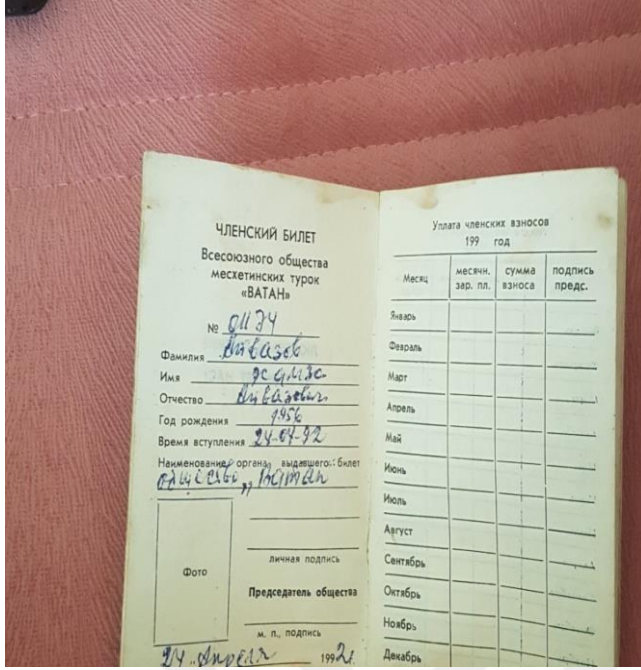 ЧЛЕНСКИЙ БИЛЕТ
Всесоюзного общества
месхетинских турок
«ВАТАН»
№
Фамилия Айвазов
Имя
Отчество Айвазович
Год рождения 1956
Время вступления 24-04-92
Наименование органа, выдавшего билет
общество „Ватан
Фото
личная подпись
Председатель общества
м. п., подпись
24 „Апреля 1992г.
Уплата членских взносов
199 год
Месяц месячн. зар. пл. сумма взноса подпись предс.
Январь
Февраль
Март
Апрель
Май
Июнь
Июль
Август
Сентябрь
Октябрь
Ноябрь
Декабрь